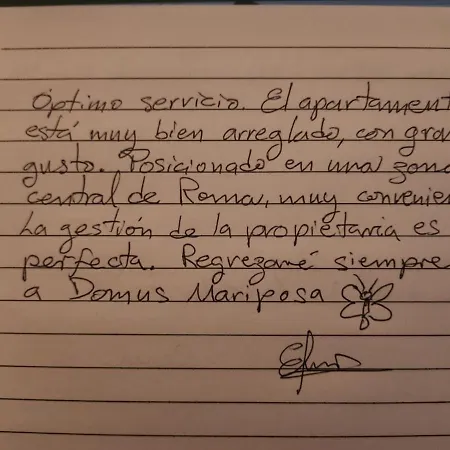 Óptimo servicio. El apartament
está muy bien arreglado, con gran
gusto. Posicionado en una zona
central de Roma, muy convenien
La gestión de la propietaria es
perfecta. Regrezaré siempre
a Domus Mariposa